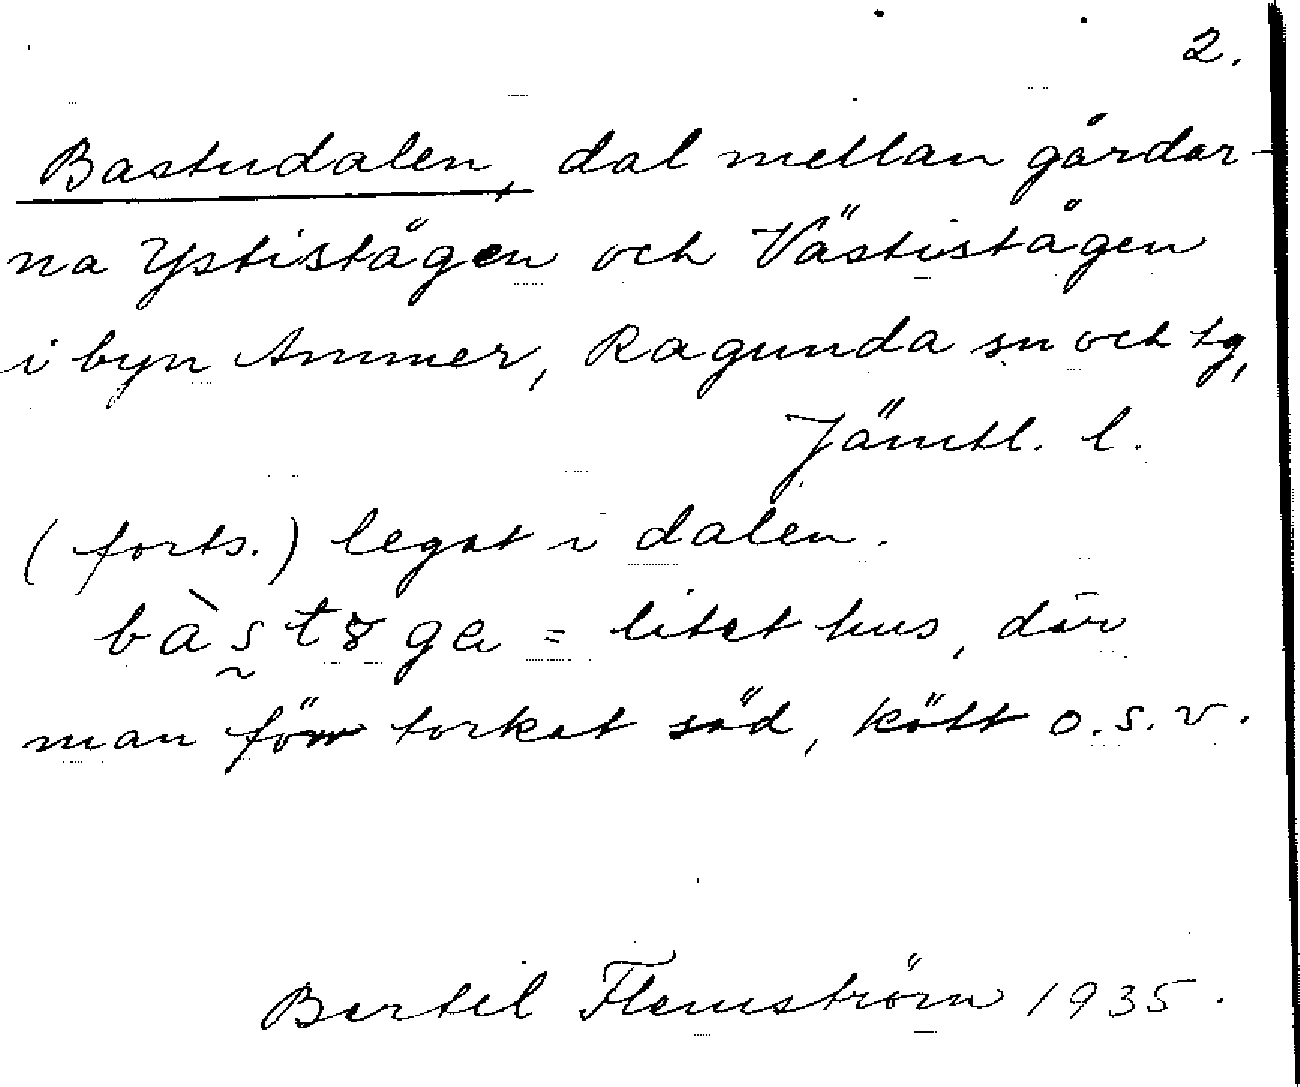 2.
Bastudalen, dal mellan gårdar-
na Ystistågen och Västistågen
i byn Ammer, Ragunda sn och tg,
Jämtl. l.
(forts.) legat i dalen.
bàs̰t8ga = litet hus, där
man förr torkat säd, kött o.s.v.
Bertil Flemström 1935.